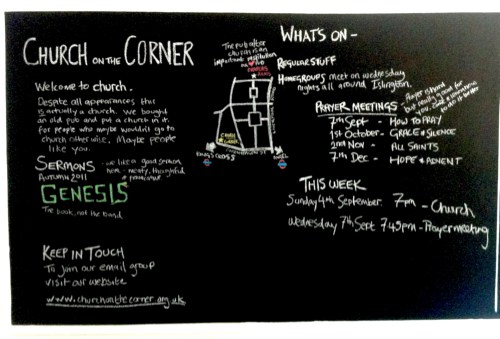 CHURCH ON THE CORNER
Welcome to church.
Despite all appearances this
is actually a church. We bought
an old pub and put a church in it
for people who maybe wouldn't go to
church otherwise. Maybe people
like you.
SERMONS - we like a good sermon
AUTUMN 2011 here - meaty, thoughtful
& passionate
GENESIS
The book, not the band.
KEEP IN TOUCH
To join our email group
visit our website
www.churchonthecorner.org.uk
The pub after
church is an
important institution
KINGS CROSS
ANGEL
WHAT'S ON -
REGULAR STUFF
HOMEGROUPS meet on wednesday
nights all around Islington.
PRAYER MEETINGS
Prayer is hard
but really good for
you. Come & someone
do it better
7th Sept - HOW TO PRAY
1st October - GRACE & SILENCE
2nd Nov - ALL SAINTS
7th Dec - HOPE & ADVENT
THIS WEEK
Sunday 4th September. 7pm - Church
Wednesday 7th Sept 7.45pm - Prayer meeting